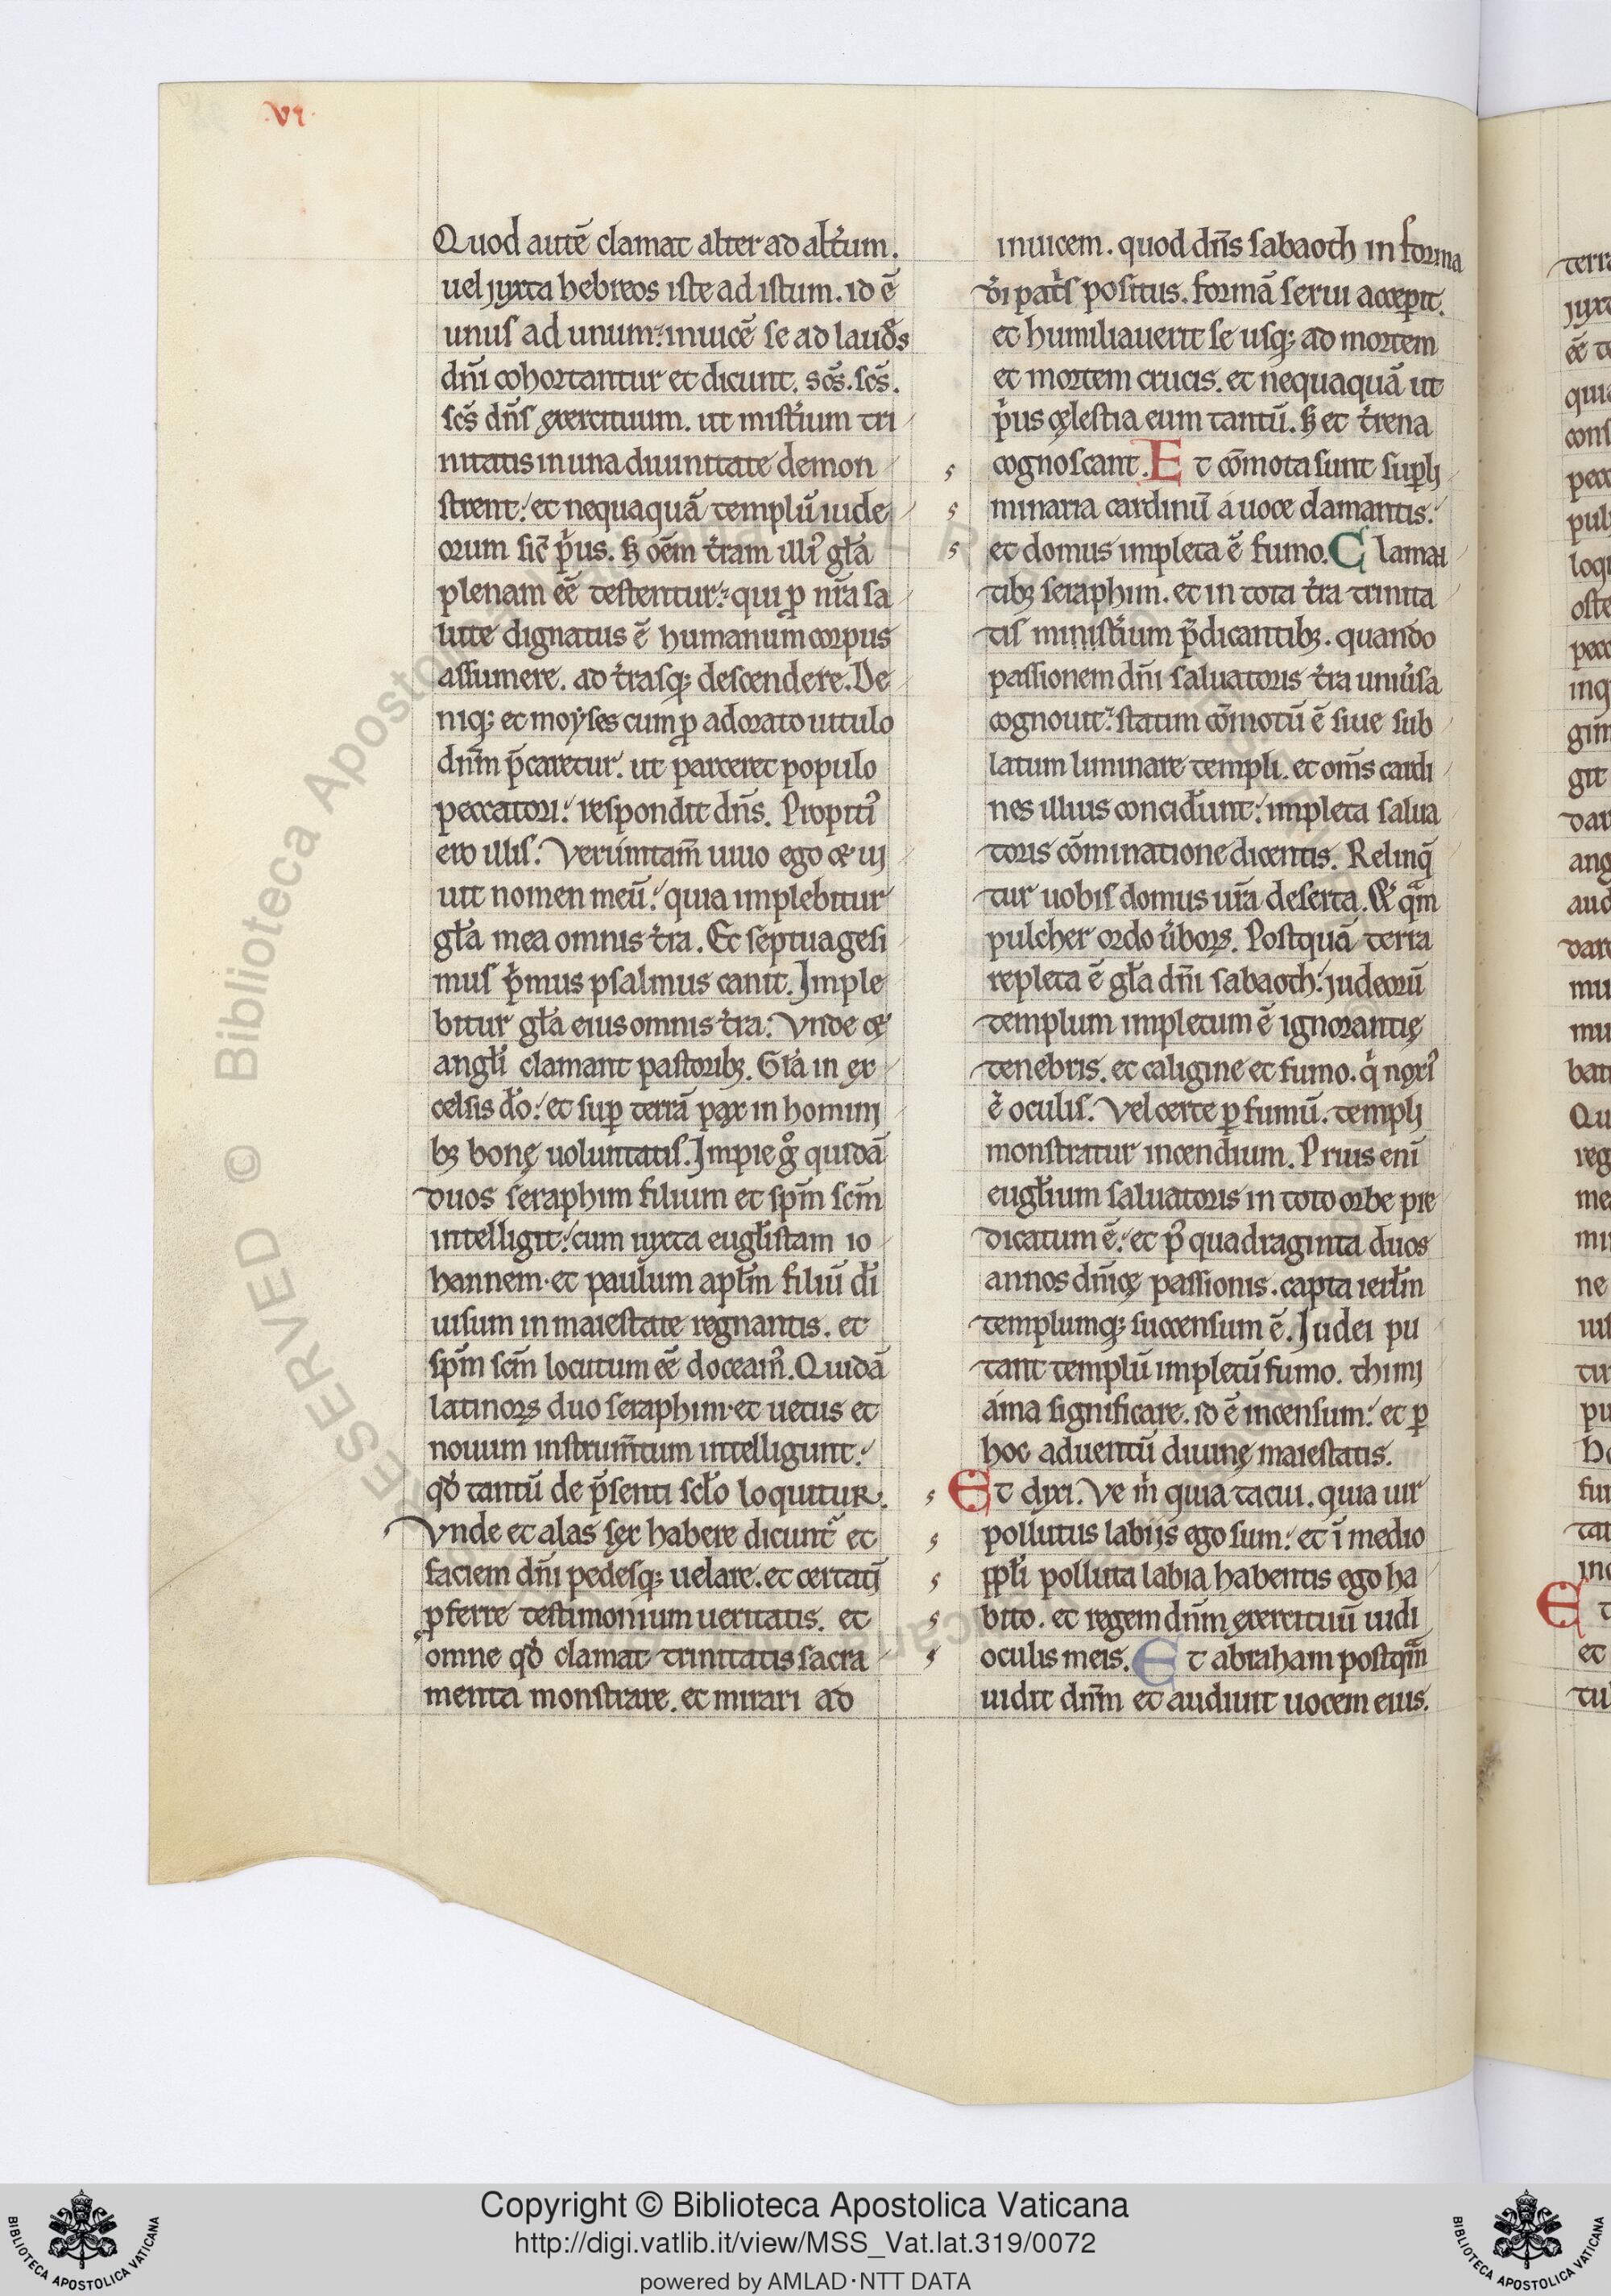 .vi.
Quod autē clamat alter ad alt̄um.
uel iuxta hebreos iste ad istum. id ē
unus ad unum: inuicē se ad laudes
dn̄i cohortantur et dicunt. scs̄. scs̄.
scs̄ dn̄s exercituum. ut mist̄ium tri
nitatis in una diuinitate demon
strent: et nequaquā templū iude
orum sic̄ p̄us. sꝫ oēm t̄ram illiꝰ gl̄a
plenam eē testentur: qui ꝓ nr̄a sa
lute dignatus ē humanum corpus
assumere. ad t̄rasqꝫ descendere. De
niqꝫ et moyses cum ꝓ adorato uitulo
dn̄m p̄caretur. ut parceret populo
peccatori: respondit dn̄s. Propitiꝰ
ero illis. Verūmtam̄ uiuo ego et ui
uit nomen meū: quia implebitur
gl̄a mea omnis t̄ra. Et septuagesi
mus p̄mus psalmus canit. Imple
bitur gl̄a eius omnis t̄ra: Vnde et
angl̄i clamant pastoribꝫ. Gl̄a in ex
celsis dō: et suꝑ terrā pax in homini
bꝫ bonę uoluntatis. Impie gͦ quidā
duos seraphim filium et sp̄m sc̄m
intelligit: cum iuxta eugl̄istam io
hannem et paulum apl̄m filiū di̅
uisum in maiestate regnantis. et
sp̄m sc̄m locutum eē doceamꝰ. Quidā
latinoꝝ duo seraphim et uetus et
nouum instrum̄tum intelligunt:
qd̄ tantū de p̄senti scl̄o loquitur.
Vnde et alas sex habere dicunt̄ et
faciem dn̄i pedesqꝫ uelare. et certati̅
ꝓferre testimonium ueritatis. et
omne qd̄ clamat trinitatis sacra
menta monstrare. et mirari ad
inuicem. quod dn̄s sabaoth in forma
di̅ pat̄s positus. formā serui acceꝑit.
et humiliauerit se usqꝫ ad mortem
et mortem crucis. et nequaquā ut
p̄us cęlestia eum tantū. sꝫ et t̄rena
cognoscant. Et cōmota sunt suꝑli
minaria cardinū a uoce clamantis:
et domus impleta ē fumo. Claman
tibꝫ seraphim. et in tota t̄ra trinita
tis minist̄ium p̄dicantibꝫ. quando
passionem dn̄i saluatoris t̄ra uniūsa
cognouit: statim cōmotū ē siue sub
latum luminare templi. et om̄s cardi
nes illius concid̄unt: impleta salua
toris cōminatione dicentis. Relinq̄
tur uobis domus ur̄a deserta. Et qᵃm
pulcher ordo ūboꝝ. Postquā terra
repleta ē gl̄a dn̄i sabaoth: iudeorū
templum impletum ē ignorantię
tenebris. et caligine et fumo. qͥ noxiꝰ
ē oculis. Vel certe ꝑ fumū. templi
monstratur incendium. Prius eni̅
eugl̄ium saluatoris in toto orbe pre
dicatum ē: et pꝰ quadraginta duos
annos dn̄icę passionis. capta ierl̄m
templumqꝫ succensum ē. Iudei pu
tant templū impletū fumo. thimi
ama significare. id ē incensum: et ꝑ
hoc aduentū diuinę maiestatis.
Et dixi. Ve m̄ quia tacui. quia uir
pollutus labijs ego sum: et i̅ medio
ppl̄i polluta labia habentis ego ha
bito. et regem dn̄m exercituū uidi
oculis meis. Et abraham postqᵃm
uidit dn̄m et audiuit uocem eius.
Copyright © Biblioteca Apostolica Vaticana
http://digi.vatlib.it/view/MSS_Vat.lat.319/0072
powered by AMLAD·NTT DATA